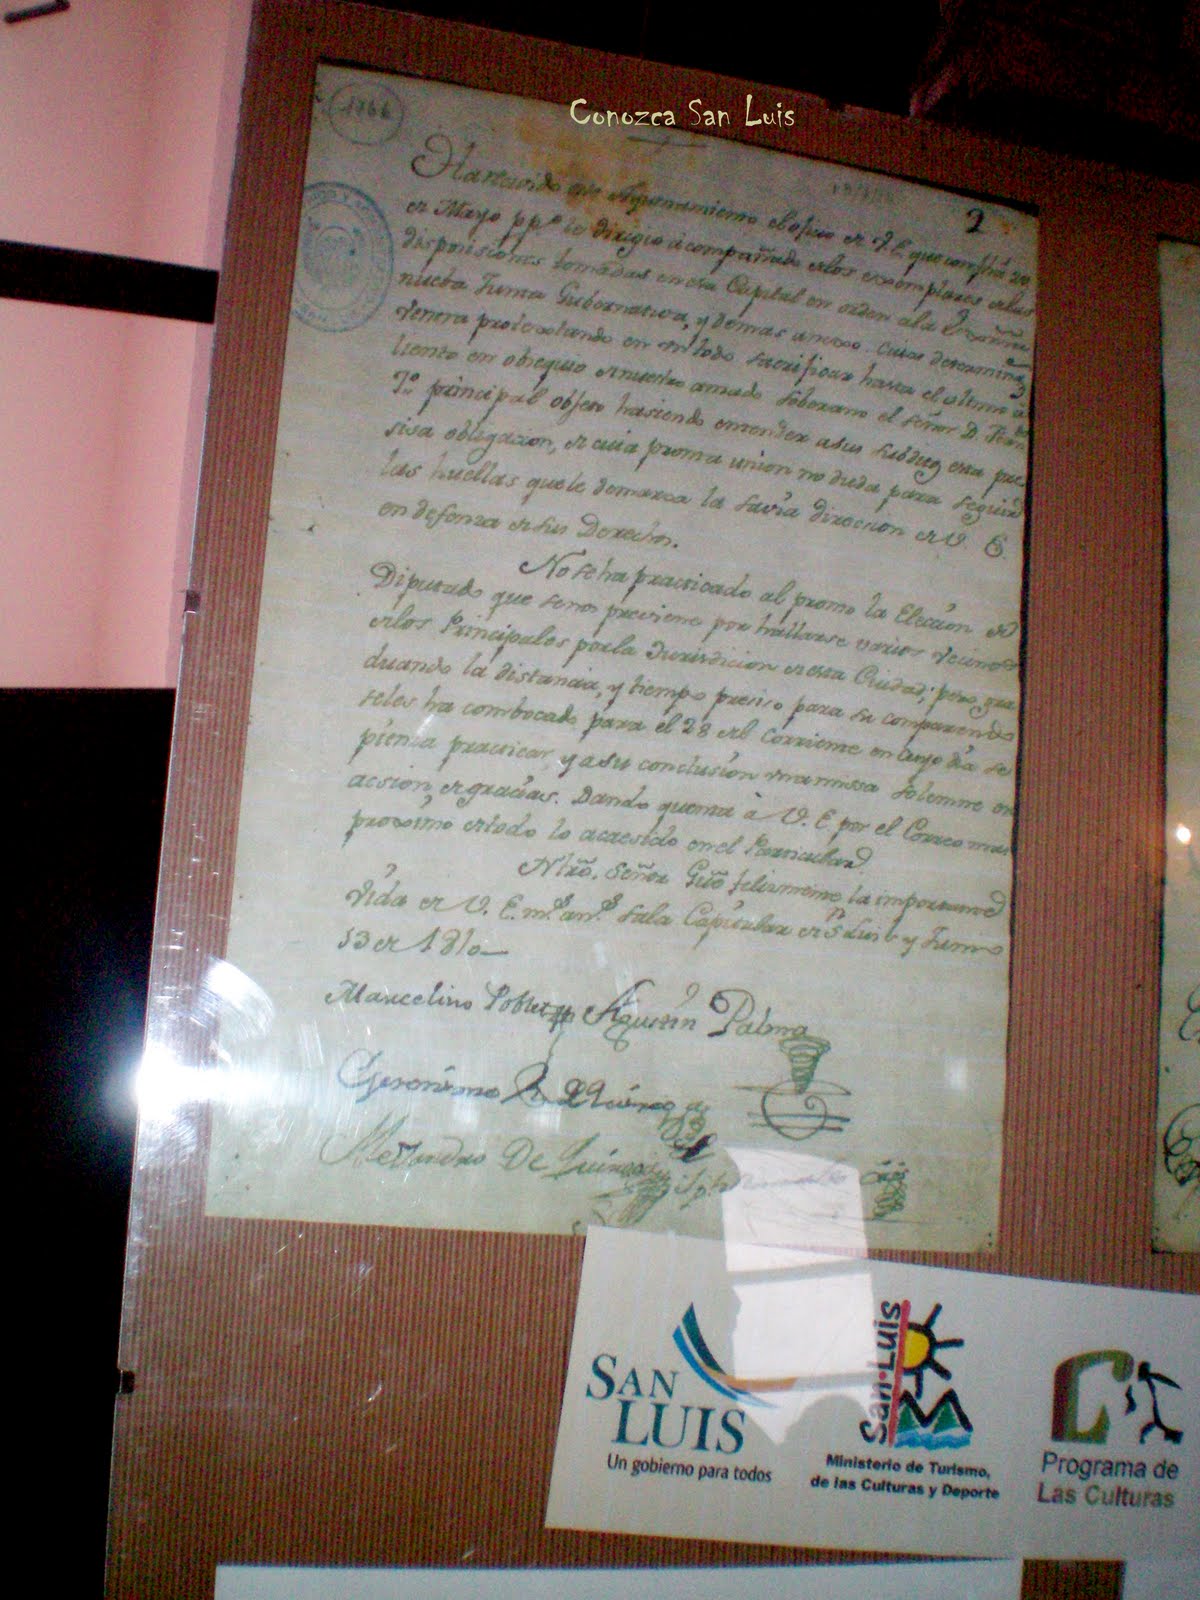 Conozca San Luis
1766
2
Ha recivido este Ayuntamiento el oficio de V.E. que con fhã 29
de Mayo pp.º le dirigio acompañado de los exemplares de las
disposiciones tomadas en esa Capital en orden a la
nueba Junta Gubernativa, y demas anexo. cuias determina
venera protextando en un todo sacrificar hasta el ultimo a
liento en obsequio de nuestro amado Soberano el señor D. Fern
7.º principal objeto hasiendo entender a sus subditos esta pre
sisa obligacion, de cuia promta union no duda para seguir
las huellas que le demarca la savia direcsion de V. E.
en defenza de sus Derechos.
No se ha practicado al promto la Eleccion de
Diputado que se nos previene por hallarse varios vecinos
de los Principales por la Jurisdicion de esta Ciudad; pero gra
duando la distancia, y tiempo preciso para su comparendo
seles ha combocado para el 28 del Corriente en cuyo dia se
pienza practicar, y a su conclusion una missa solemne en
acsion de gracias. Dando quenta à V. E. por el Correo mas
proximo de todo lo acaesido en el Particular.
Ntrõ. Señor Gũe felizmente la importante
vida de V. E. m.s an.s Sala Capitular de S.n Luis y Junio
13 de 1810
Marcelino Poblet Agustin Palma
Geronimo R. de Quiroga
Alexandro De Quiroga
SAN LUIS
Un gobierno para todos
San Luis
Ministerio de Turismo,
de las Culturas y Deporte
Programa de
Las Culturas